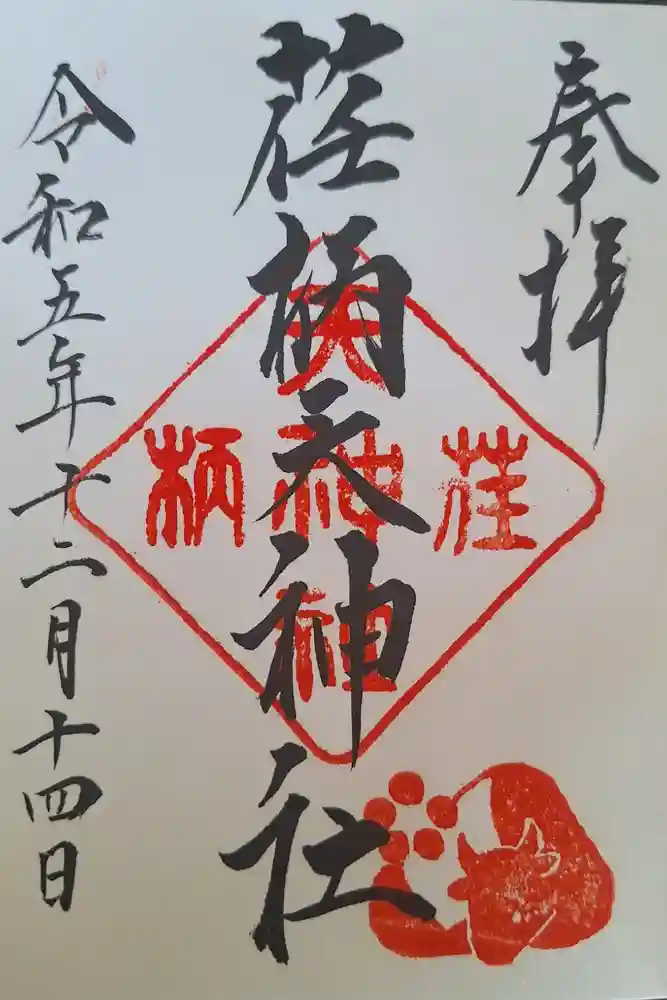 奉拝
荏柄天神社
荏
天神社
柄
令和五年十二月十四日